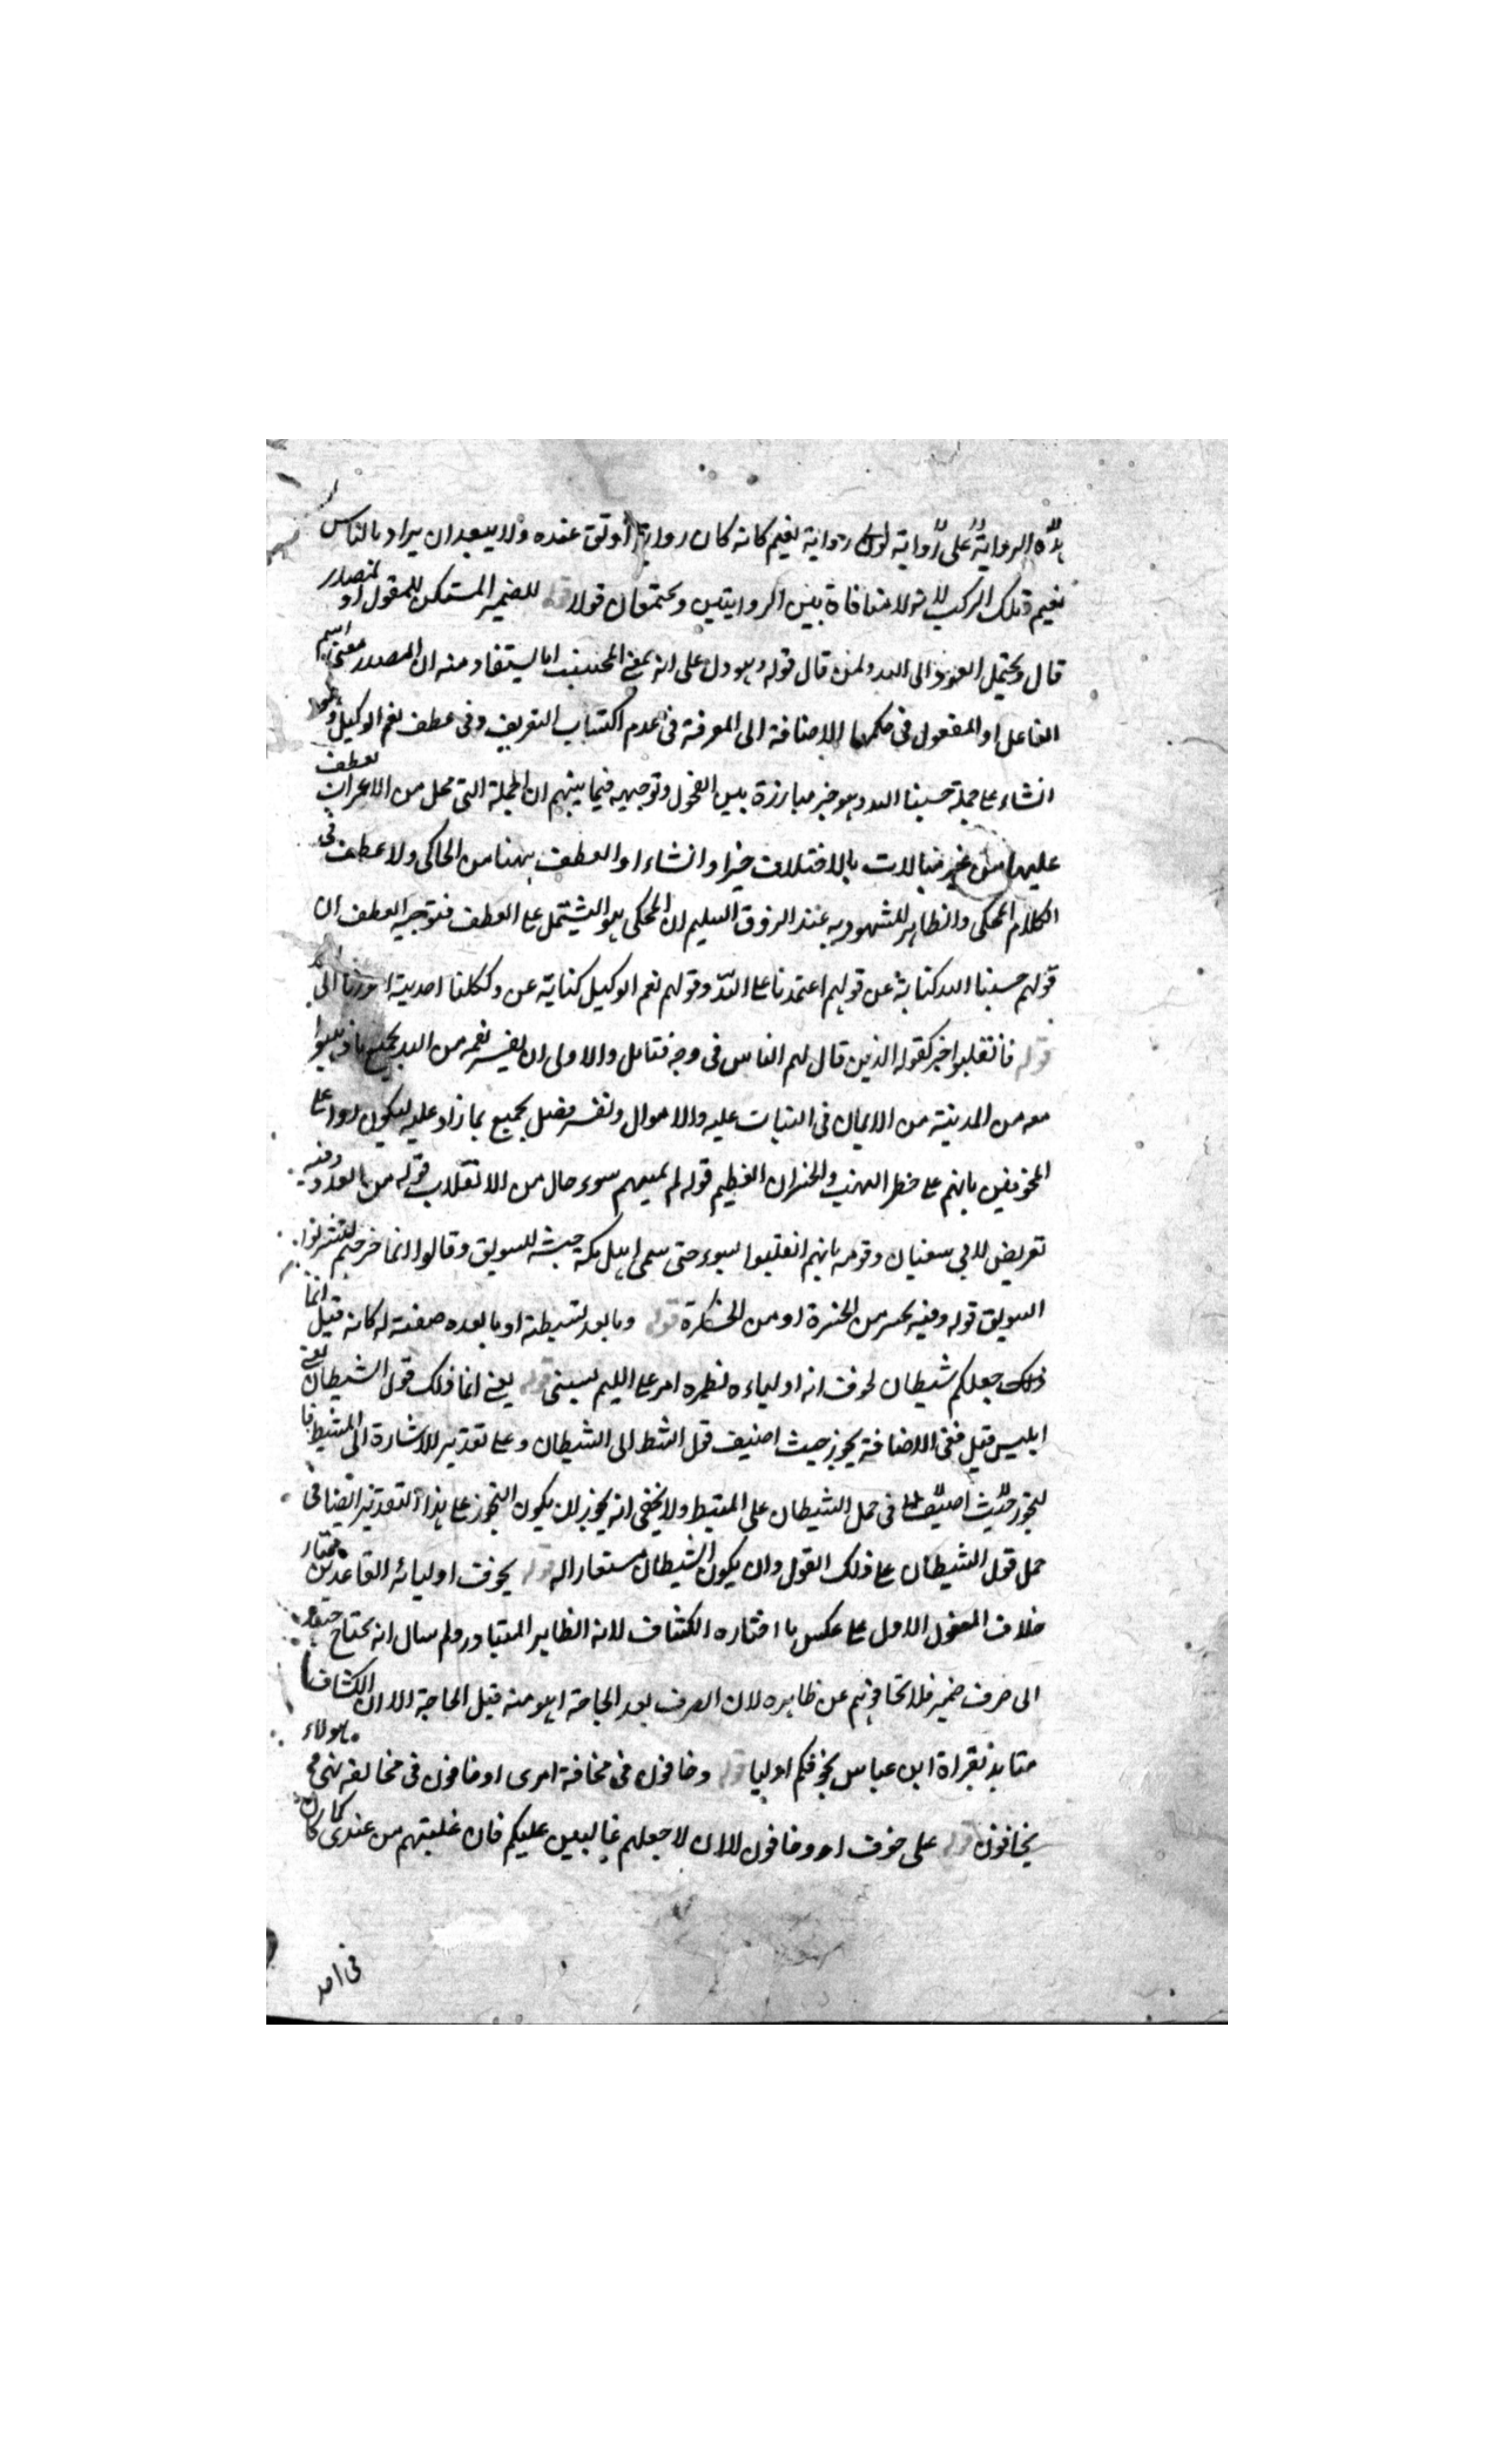 هذه الرواية على رواية لولي رواية نعيم كانه كان رواية أوثق عنده ولا يبعد ان يراد بالناس
نعيم وتلك الركب لانه لا منافاة بين الروايتين ويحتمعان قولا قوله للضمير المستكن للمقول او لمصدر
قال ويحتمل العود الى الله ولمن قال قوله وهو دل على انه بمعنى المحسب اما يستفاد منه ان المصدر بمعنى اسم
الفاعل او المفعول في حكمهما الاضافة الى المعرفة في عدم اكتساب التعريف وفي عطف نعم الوكيل وهو
انشاء على جملة حسبنا الله وهو خبر مبارزة بين الفحول وتوجيهه فيما بينهم ان الجملة التي محل من الاعراب لعطف
عليها من غير مبالات بالاختلاف خبرا وانشاء او العطف ههنا من الحاكى ولا عطف في
الكلام المحكى والظاهر المشهود به عند الذوق السليم ان المحكى هو المشتمل على العطف فتوجيه العطف ان
قولهم حسبنا الله كناية عن قولهم اعتمدنا على الله وقولهم نعم الوكيل كناية عن وكلنا اليه امورنا
قوله فانقلبوا خبر كقوله الذين قال لهم الناس في وجه فتامل والاولى ان يفسر نعمة من الله بجميع ما ذهبوا
معه من المدينة من الايمان في الثبات عليه والاموال وتفسر فضل بجميع ما زاد عليه ليكون ردا على
المخوفين بانهم على خطر النهب والخسران العظيم قوله لم يمسهم سوء حال من الانقلاب قوله من العدو وفيه
تعريض لابي سفيان وقومه بانهم انقلبوا بسوء حتى سمى اهل مكة جيشه للسويق وقالوا انما خرجتم لتشربوا
السويق قوله وفيه تحسر من الحسرة او من قوله وما بعد لشيطنته او ما بعده صفته له كانه قيل انما
ذلك جعلكم شيطان يخوف انه اولياءه نظيره امر على اللئيم يسبني قوله يعني انما ذلك قول الشيطان يعني
ابليس قيل ففي الاضافة تجوز حيث اضيف قول المثبط الى الشيطان وعلى تقدير الاشارة الى المثبط فا
لتجوز حيث اضيف في حمل الشيطان على المثبط ولا يخفى انه يجوز ان يكون التجوز على هذا التقدير ايضا في
حمل قول الشيطان على ذلك القول وان يكون الشيطان مستعارا له قوله يخوف اوليائه القاعدين مختار
خلاف المفعول الاول على عكس ما اختاره الكشاف لانه الظاهر المتبادر ولم يبال انه يحتاج
الى صرف ضمير فلا تخافوهم عن ظاهره لان الصرف بعد الحاجة اهون منه قبل الحاجة الا ان الكشاف
متايد بقراة ابن عباس يخوفكم اولياء قوله وخافون في مخافة امرى او خافون في مخالفته هولاء
يخافون قوله على خوف او وخافون لان لا جعلهم غالبين عليكم فان غلبتهم من عندى كما كان
في احد